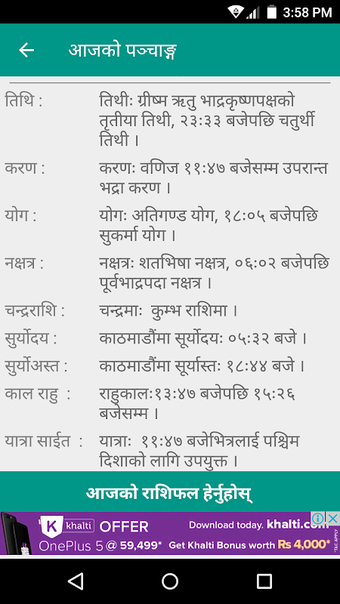 3:58 PM
आजको पञ्चाङ्ग
तिथि : तिथीः ग्रीष्म ऋतु भाद्रकृष्णपक्षको
तृतीया तिथी, २३:३३ बजेपछि चतुर्थी
तिथी ।
करण : करणः वणिज ११:४७ बजेसम्म उपरान्त
भद्रा करण ।
योग : योगः अतिगण्ड योग, १८:०५ बजेपछि
सुकर्मा योग ।
नक्षत्र : नक्षत्रः शतभिषा नक्षत्र, ०६:०२ बजेपछि
पूर्वभाद्रपदा नक्षत्र ।
चन्द्रराशि : चन्द्रमाः कुम्भ राशिमा ।
सुर्योदय : काठमाडौंमा सूर्योदयः ०५:३२ बजे ।
सुर्योअस्त : काठमाडौंमा सूर्यास्तः १८:४४ बजे ।
काल राहु : राहुकालः१३:४७ बजेपछि १५:२६
बजेसम्म ।
यात्रा साईत : यात्राः ११:४७ बजेभित्रलाई पश्चिम
दिशाको लागि उपयुक्त ।
आजको राशिफल हेर्नुहोस्
K khalti OFFER Download today. khalti.com
OnePlus 5 @ 59,499* Get Khalti Bonus worth Rs 4,000*